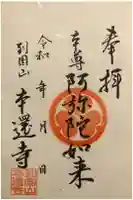 奉拝
本尊
阿弥陀如来
令和 年 月 日
別因山
本還寺